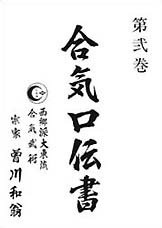 第弐巻
合気口伝書
西郷派大東流
合気武術
宗家 曽川和翁